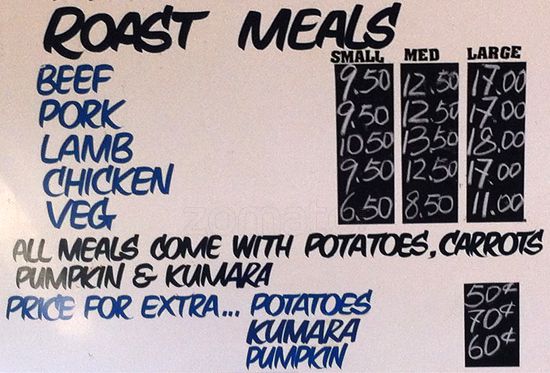 ROAST MEALS
SMALL MED LARGE
BEEF 9.50 12.50 17.00
PORK 9.50 12.50 17.00
LAMB 10.50 13.50 18.00
CHICKEN 9.50 12.50 17.00
VEG 6.50 8.50 11.00
zomato
ALL MEALS COME WITH POTATOES, CARROTS
PUMPKIN & KUMARA
PRICE FOR EXTRA... POTATOES 50¢
KUMARA 70¢
PUMPKIN 60¢